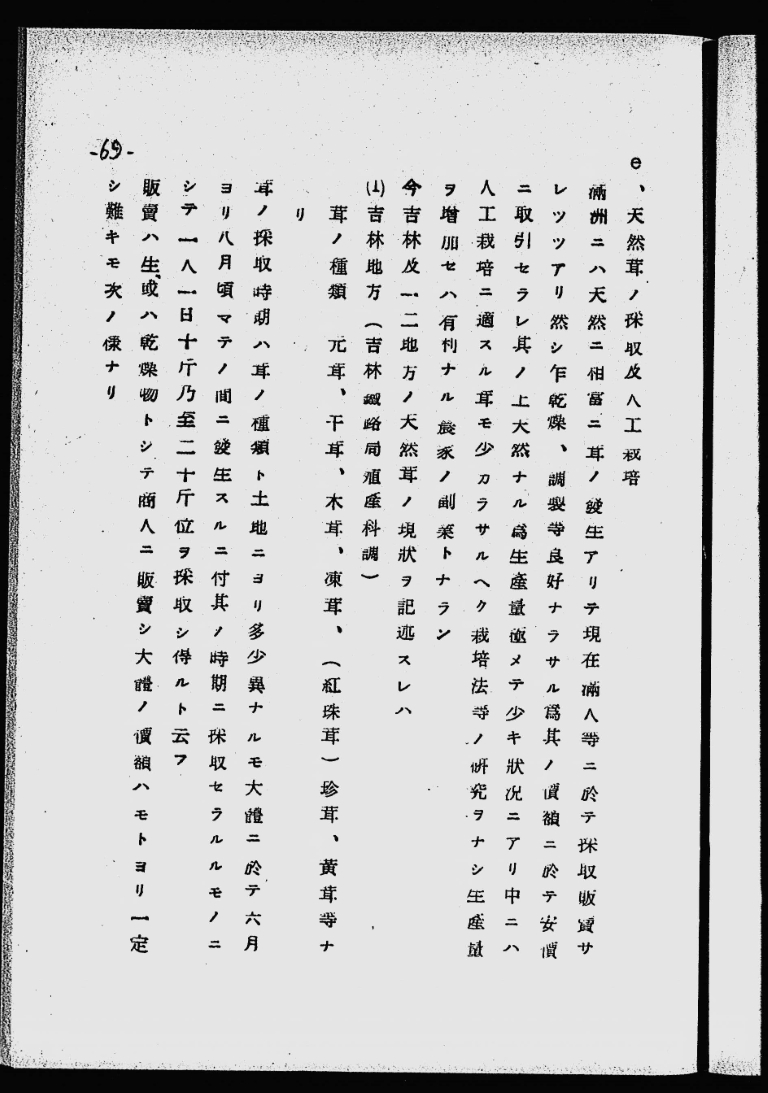 e、天然茸ノ採取及人工栽培
滿洲ニハ天然ニ相當ニ茸ノ發生アリテ現在滿人等ニ於テ採取販賣サ
レツツアリ然シ乍乾燥、調製等良好ナラサル爲其ノ價額ニ於テ安價
ニ取引セラレ其ノ上天然ナル爲生產量極メテ少キ狀況ニアリ中ニハ
人工栽培ニ適スル茸モ少カラサルヘク栽培法等ノ硏究ヲナシ生產量
ヲ增加セハ有利ナル農家ノ副業トナラン
今吉林及一二地方ノ天然茸ノ現狀ヲ記述スレハ
(1)吉林地方(吉林鐵路局殖產科調)
茸ノ種類 元茸、干茸、木茸、凍茸、(紅珠茸)珍茸、黃茸等ナ
リ
茸ノ採取時期ハ茸ノ種類ト土地ニヨリ多少異ナルモ大體ニ於テ六月
ヨリ八月頃マテノ間ニ發生スルニ付其ノ時期ニ採取セラルルモノニ
シテ一人一日十斤乃至二十斤位ヲ採取シ得ルト云フ
販賣ハ生、或ハ乾燥物トシテ商人ニ販賣シ大體ノ價額ハモトヨリ一定
シ難キモ次ノ樣ナリ
-69-